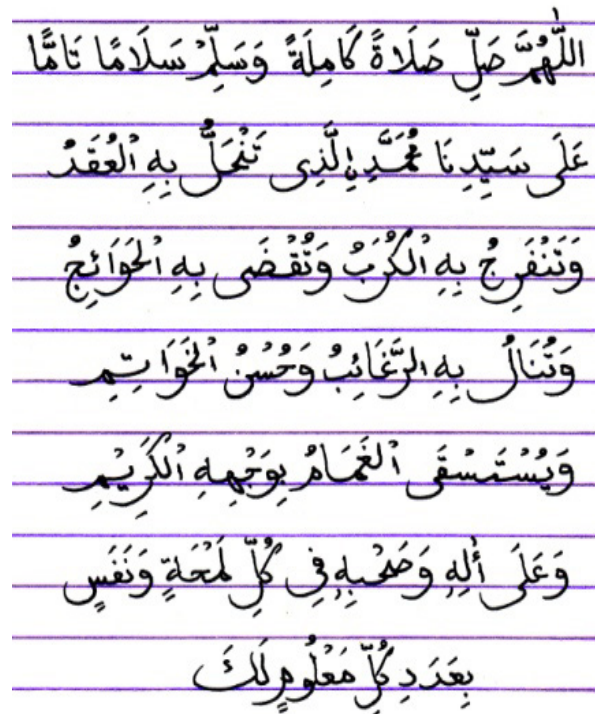 اللّٰهُمَّ صَلِّ صَلَاةً كَامِلَةً وَسَلِّمْ سَلَامًا تَامًّا
عَلَى سَيِّدِنَا مُحَمَّدِنِ الَّذِى تَنْحَلُّ بِهِ الْعُقَدُ
وَتَنْفَرِجُ بِهِ الْكُرَبُ وَتُقْضَى بِهِ الْحَوَائِجُ
وَتُنَالُ بِهِ الرَّغَائِبُ وَحُسْنُ الْخَوَاتِمِ
وَيُسْتَسْقَى الْغَمَامُ بِوَجْهِهِ الْكَرِيْمِ
وَعَلَى أٰلِهِ وَصَحْبِهِ فِى كُلِّ لَمْحَةٍ وَنَفَسٍ
بِعَدَدِ كُلِّ مَعْلُومٍ لَكَ